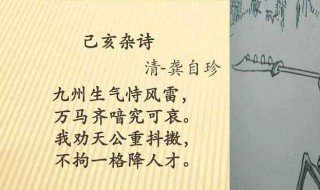 己亥杂诗
清-龚自珍
九州生气恃风雷，
万马齐喑究可哀。
我劝天公重抖擞，
不拘一格降人才。